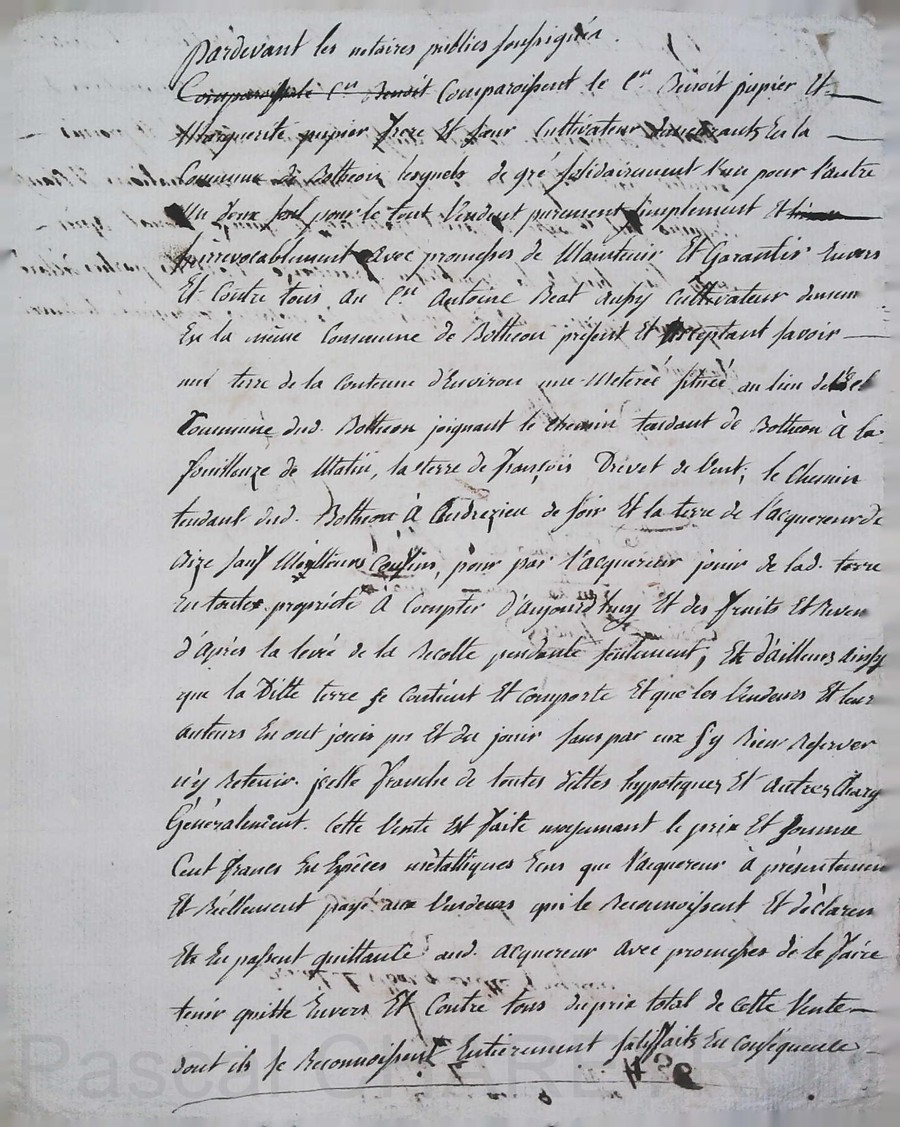 pardevant les notaires publics soussignés.
Comparoissent le Cen Benoit Comparoissent le Cen Benoit pupier Et
Marguerite pupier frere Et sœur Cultivateur demeurants En la
Commune de Botheon lesquels de gré solidairement l'un pour l'autre
Un deux seul pour le tout Vendent purement simplement et
irrevocablement avec promesses de Maintenir Et Garantir Envers
Et Contre tous au Cen Antoine Beat Cultivateur demeu
En la meme Commune de Botheon présent Et acceptant savoir
une terre de la Contenue d'Environ une Meterée située au lieu de
Commune dud. Botheon joignant le Chemin tendant de Botheon à la
fouillouze de Matin, la terre de françois Drevet de Vent; le Chemin
tendant dud. Botheon à Andrezieu de soir Et la terre de l'acquereur de
Bize sauf Meilleurs Confins, pour par l'acquereur jouir de lad. terre
En toute propriété A Compter d'aujourd'huy Et des fruits Et Reven
d'après la levée de la Recolte pendante seulement; Et d'ailleurs ainsy
que la Ditte terre se Contient Et comporte Et que les Vendeurs Et leur
auteurs En ont jouis pu Et du jouir sans par eux s'y Rien Reserver
n'y Retenir. jcelle franche de toutes dittes hypoteques Et autres Charg
Généralement. Cette Vente Est faite moyennant le prix Et somme
Cent francs En Espèces métalliques que l'acquereur à présentemen
Et Réellement payé aux Vendeurs qui le Reconnoissent Et déclaren
Et En passent quittance aud. acquereur avec promesses de le faire
tenir quitte Envers Et Contre tous du prix total de Cette Vente
dont ils se Reconnoissent Entierement satisfaits En Conséquence